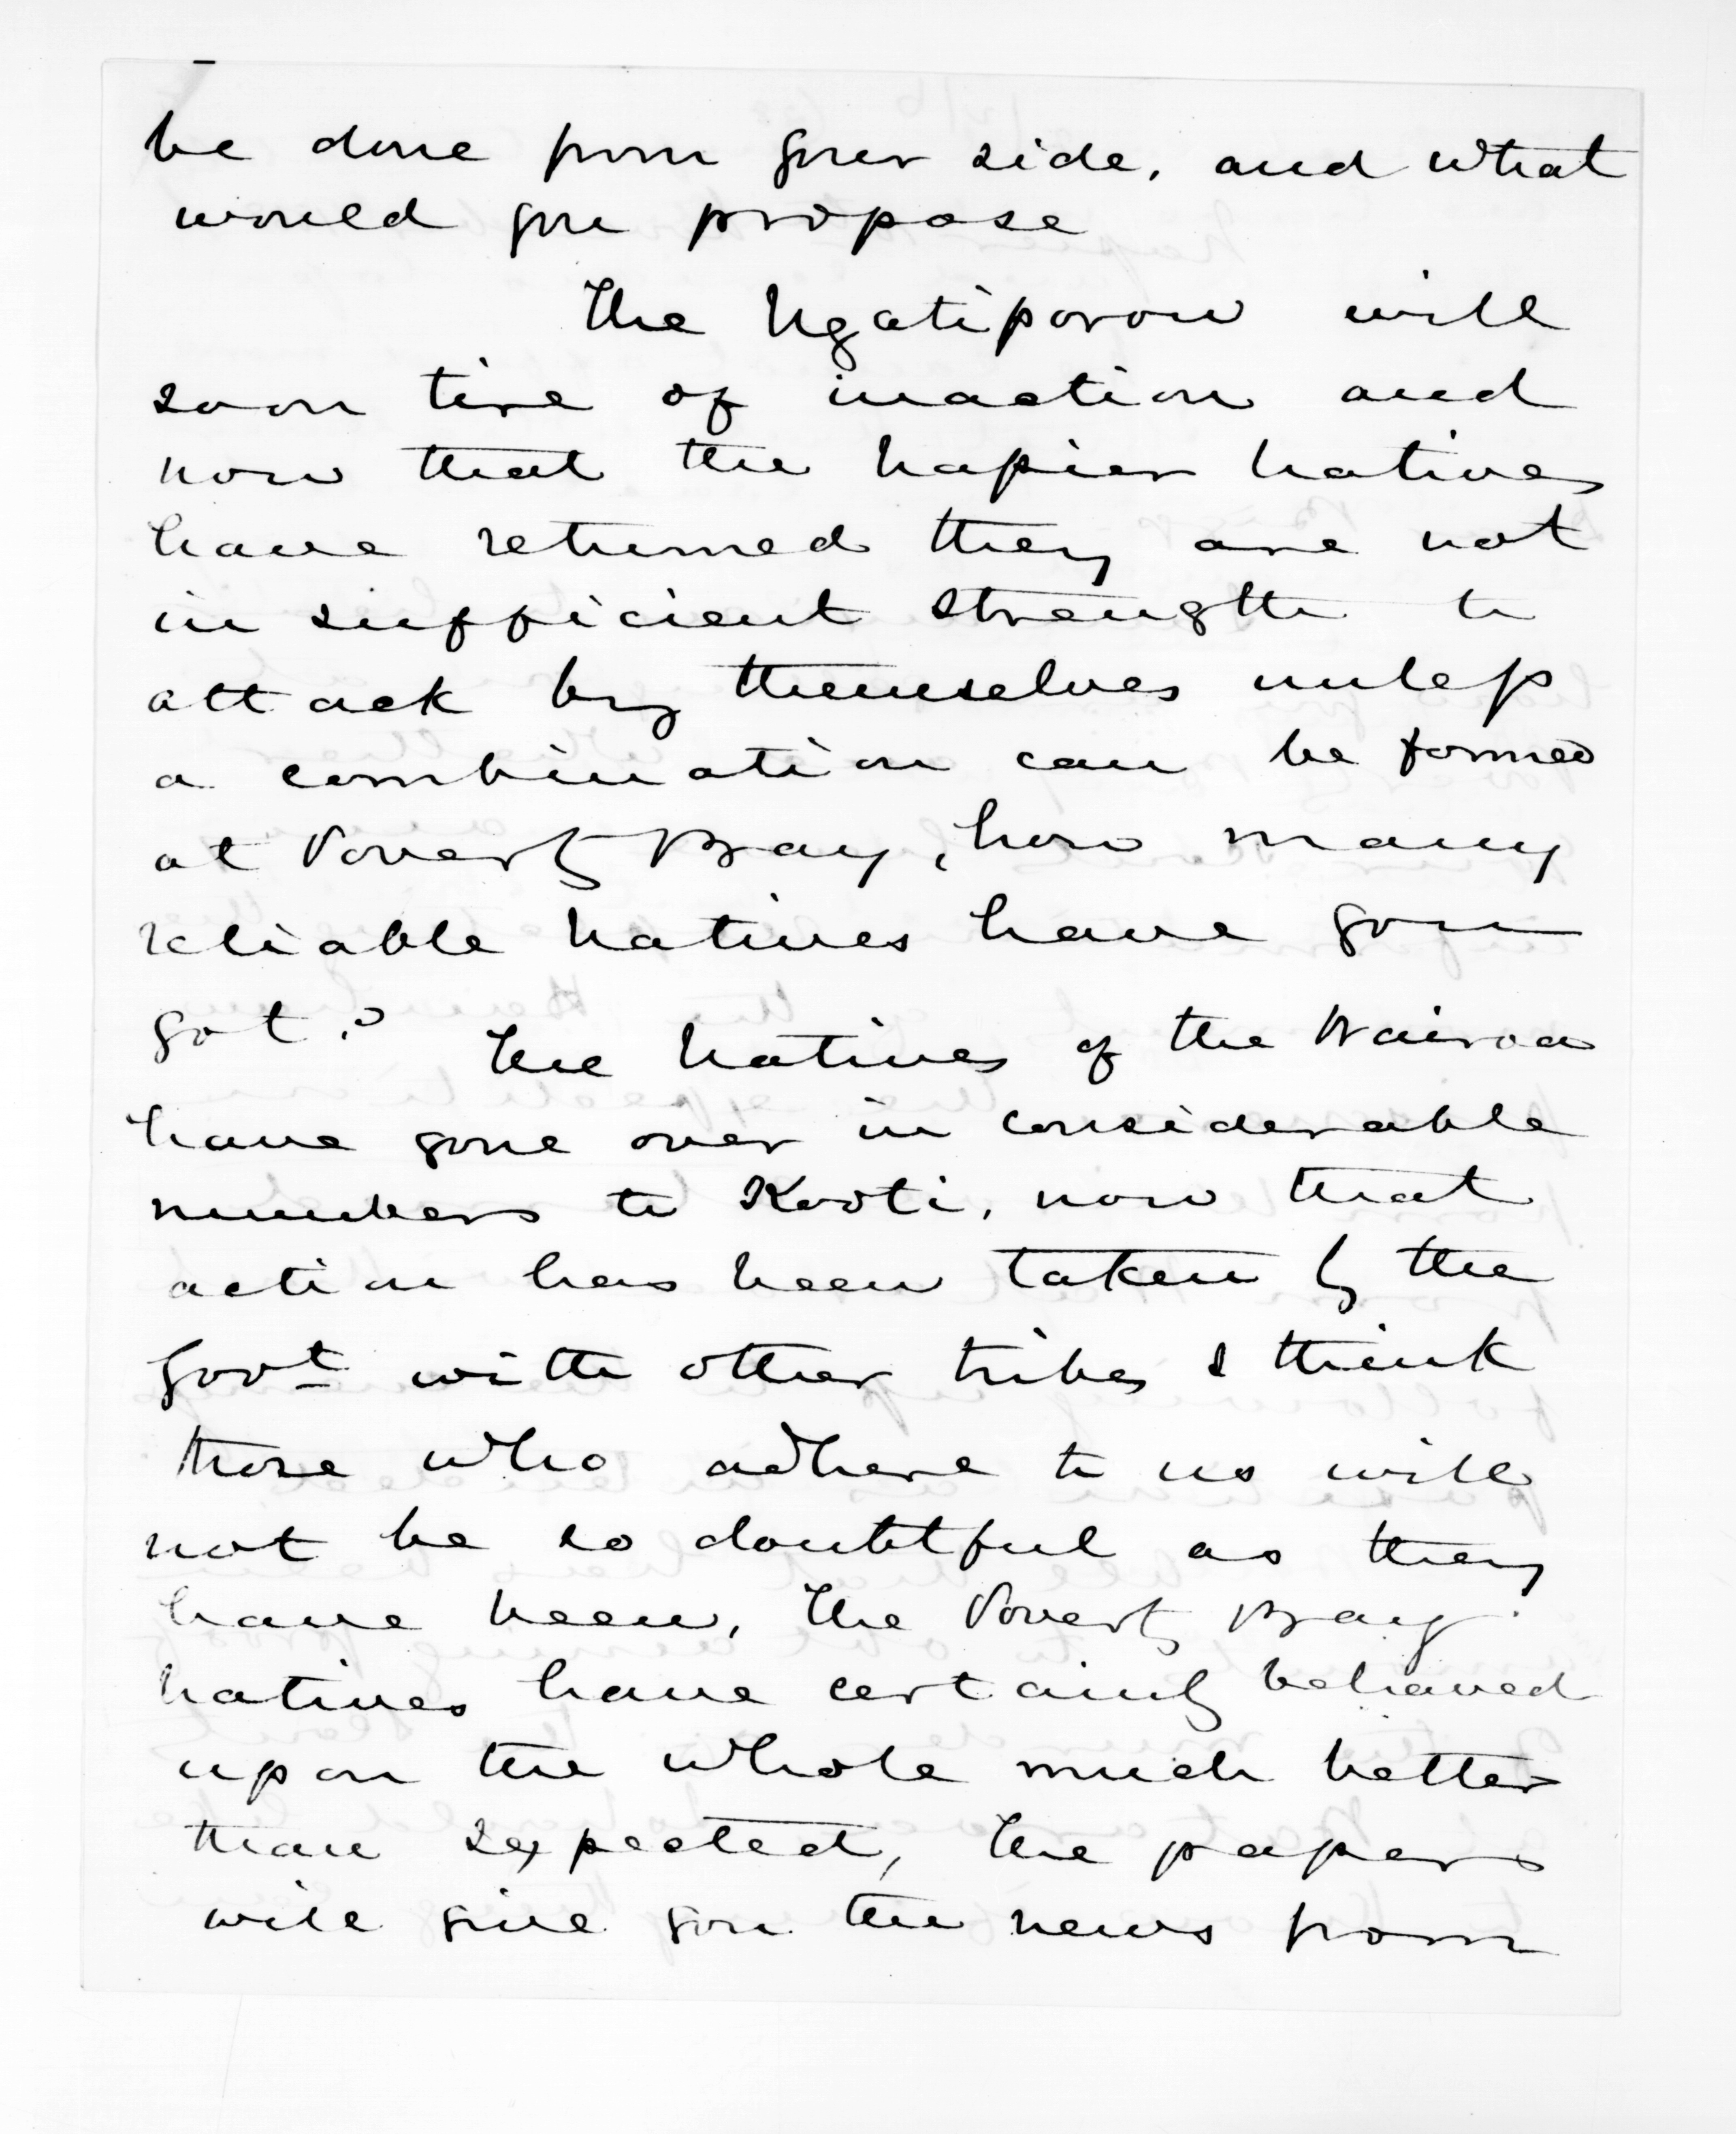 be done from your side, and what
would you propose
The Ngatiporou will
soon tire of inaction and
now that the Napier Natives
have returned they are not
in sufficient strength to
attack by themselves unless
a combination can be formed
at Poverty Bay, how many
reliable Natives have you
got?
The Natives of the Wairoa
have gone over in considerable
numbers to Kooti, now that
action has been taken by the
Govt with other tribes I think
those who adhere to us will
not be so doubtful as they
have been, The Poverty Bay
Natives have certainly behaved
upon the whole much better
than expected, The papers
will give you the news from